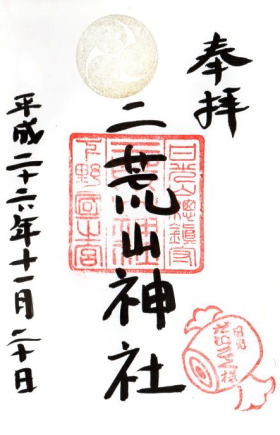 奉拝
二荒山神社
平成二十六年十一月二十日
日光山總鎮守
下野國一之宮